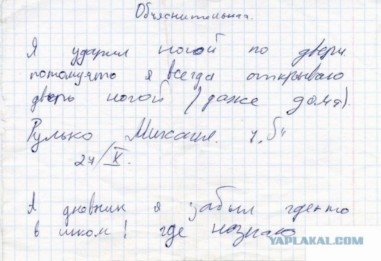 Объяснительная.
Я ударил ногой по двери
потомушто я всегда открываю
дверь ногой (даже дома).
Рулько Михаил. 7 „Б"
24/X.
А дневник я забыл гдето
в школ! где незнаю
YAPLAKAL.COM